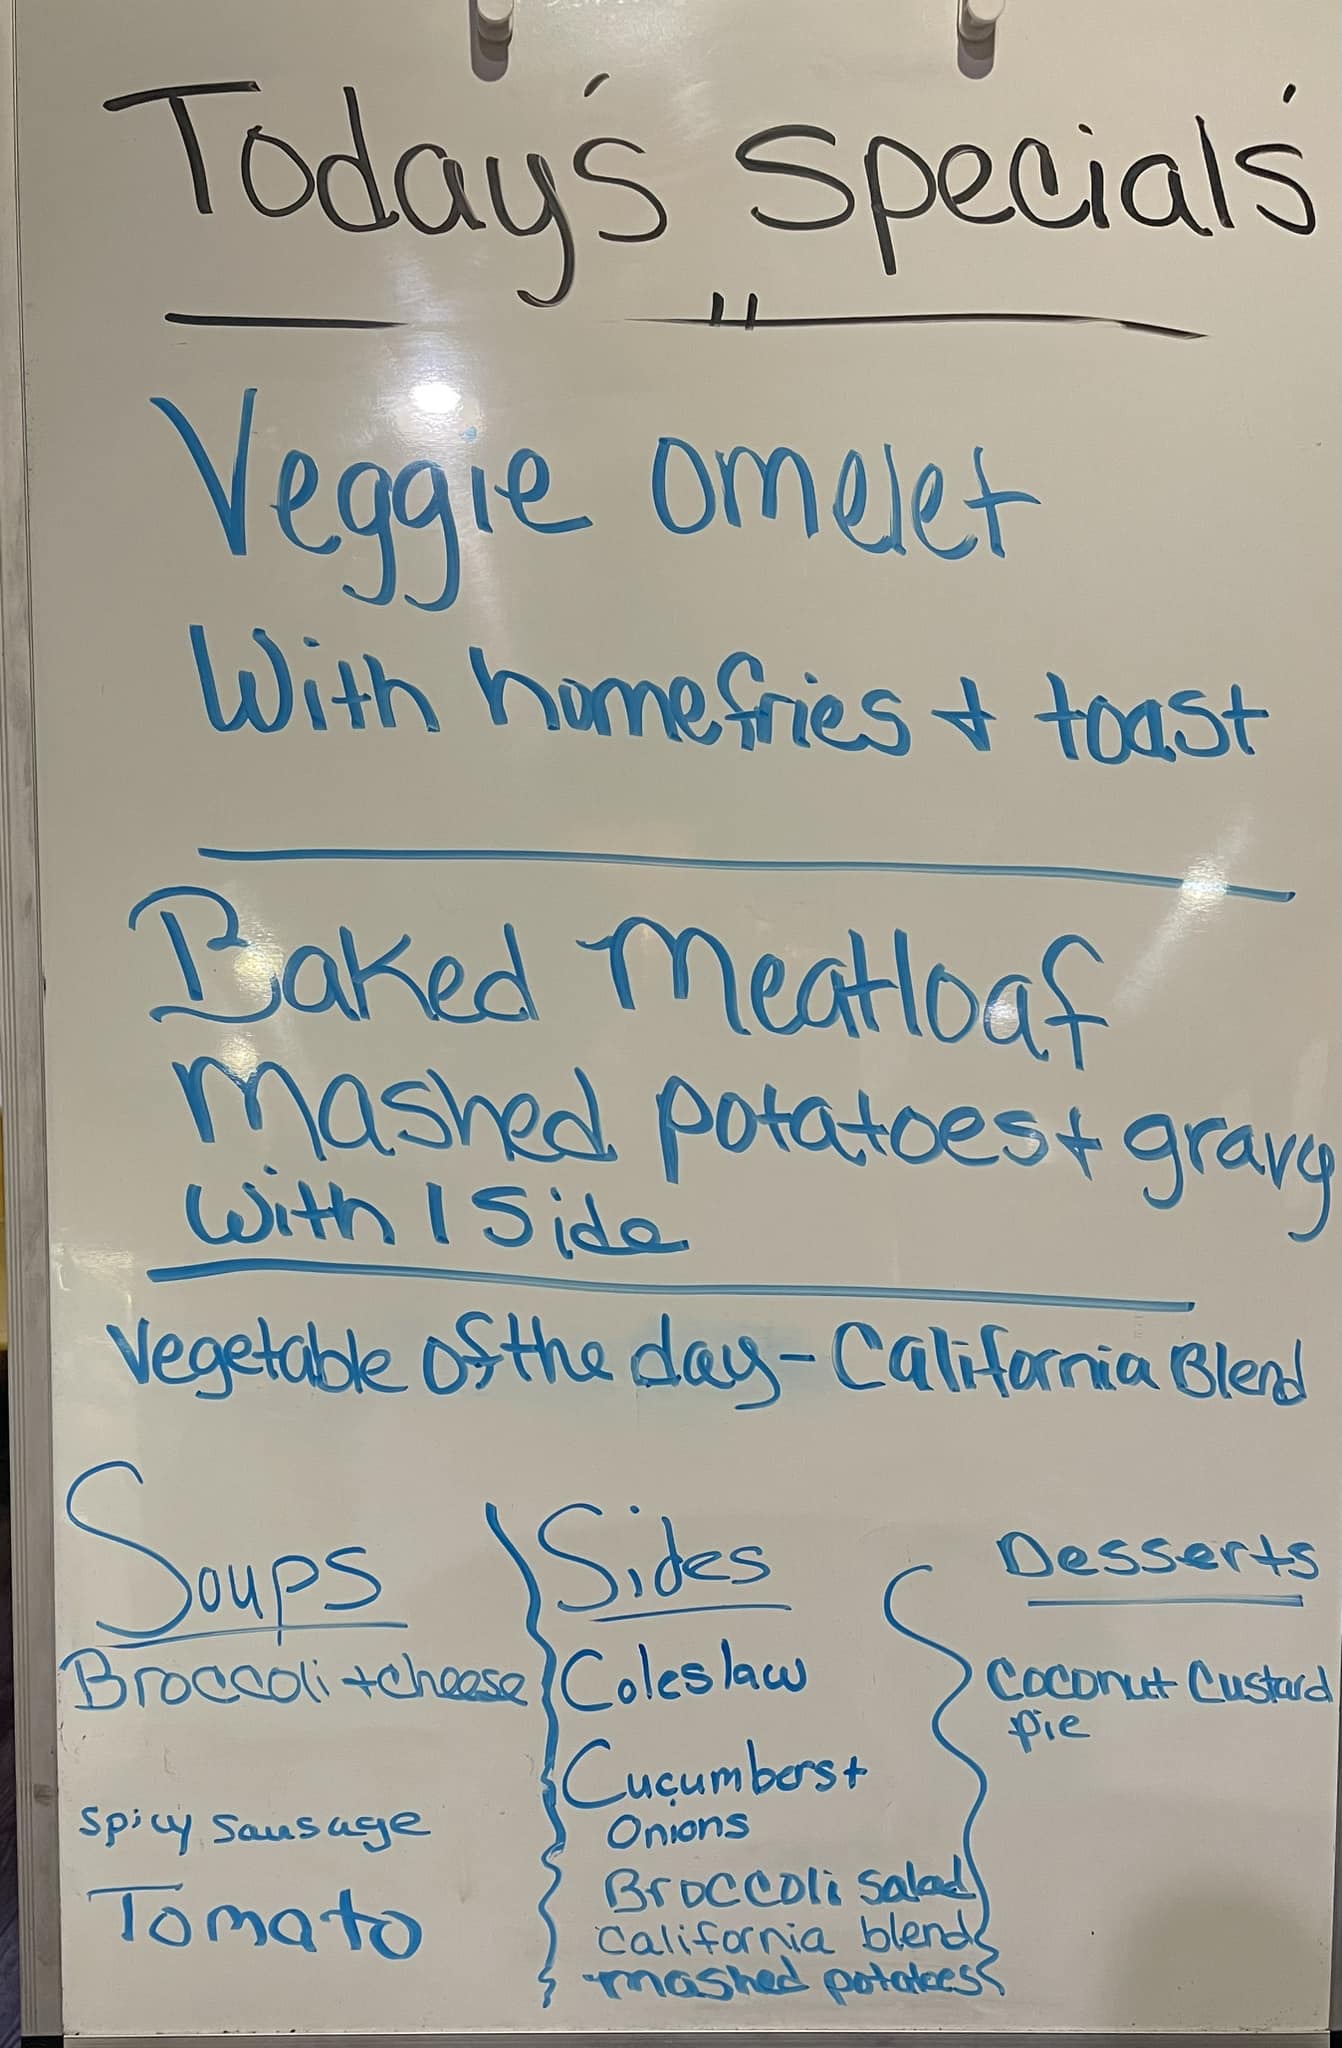 Today's Special's
Veggie omelet
With homefries + toast
Baked Meatloaf
Mashed potatoes + gravy
With 1 Side
Vegetable of the day - California Blend
Soups
Broccoli + cheese
Spicy Sausage
Tomato
Sides
Coleslaw
Cucumbers +
Onions
Broccoli Salad
California blend
mashed potatoes
Desserts
Coconut Custard
pie